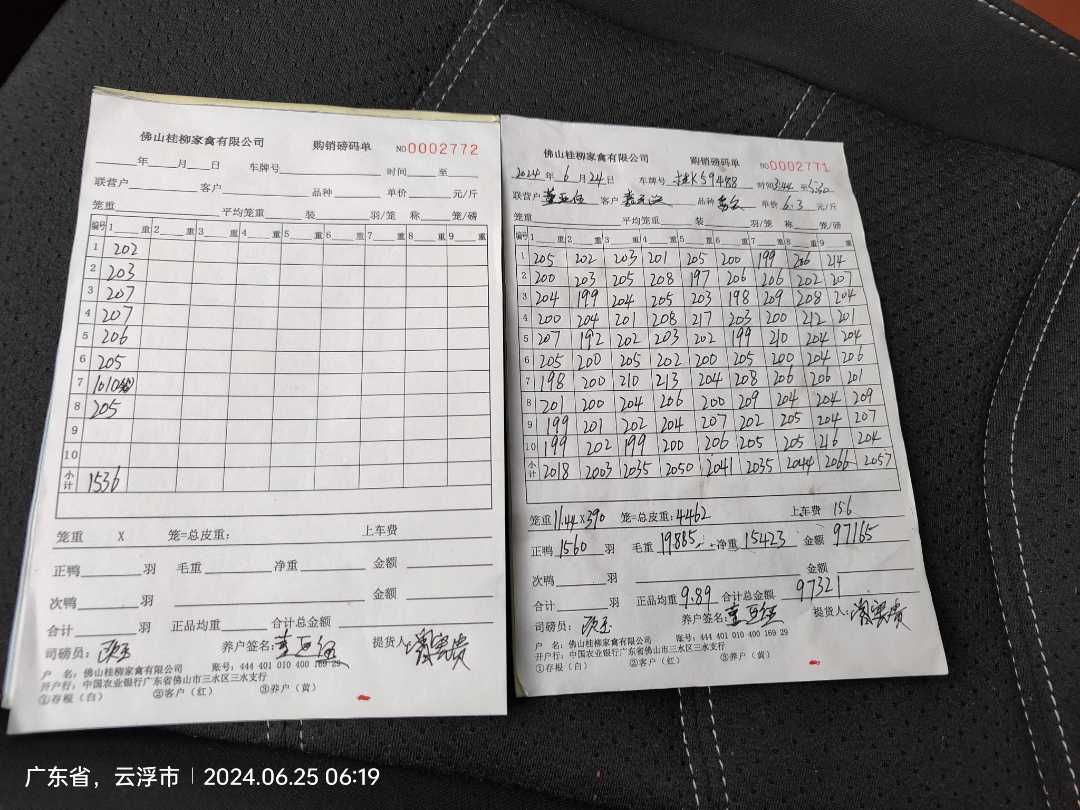 佛山桂柳家禽有限公司 购销磅码单 NO0002772
年 月 日 车牌号 时间 至
联营户 客户 品种 单价 元/斤
笼重 平均笼重 装 羽/笼 称 笼/磅
编号 1 重 2 重 3 重 4 重 5 重 6 重 7 重 8 重 9 重
1 202
2 203
3 207
4 207
5 206
6 205
7 101
8 205
9
10
小计 1536
笼重 X 笼=总皮重: 上车费
正鸭 羽 毛重 净重 金额
次鸭 羽 金额
合计 羽 正品均重 合计总金额
司磅员: 养户签名: 提货人:
户 名: 佛山桂柳家禽有限公司 账号: 444 401 010 400 169 29
开户行: 中国农业银行广东省佛山市三水区三水支行
①存根(白) ②客户(红) ③养户(黄)
佛山桂柳家禽有限公司 购销磅码单 NO0002771
2024 年 6 月 24 日 车牌号 桂K59488 时间 3:44 至 5:30
联营户 客户 品种 单价 6.3 元/斤
笼重 平均笼重 装 羽/笼 称 笼/磅
编号 1 重 2 重 3 重 4 重 5 重 6 重 7 重 8 重 9 重
1 205 202 203 201 205 200 199 206 214
2 200 203 205 208 197 206 206 202 207
3 204 199 204 205 203 198 209 208 204
4 200 204 201 208 217 203 200 212 201
5 207 192 202 203 202 199 210 204 204
6 205 200 205 202 200 205 200 204 206
7 198 200 210 213 204 208 206 206 201
8 201 200 204 206 200 209 204 204 209
9 199 201 202 204 207 202 205 204 207
10 199 202 199 200 206 205 205 216 204
小计 2018 2003 2035 2050 2041 2035 2044 2066 2057
笼重 11.44 X 390 笼=总皮重: 4462 上车费 156
正鸭 1560 羽 毛重 19885 净重 15423 金额 97165
次鸭 羽 金额
合计 羽 正品均重 9.89 合计总金额 97321
司磅员: 养户签名: 提货人:
户 名: 佛山桂柳家禽有限公司 账号: 444 401 010 400 169 29
开户行: 中国农业银行广东省佛山市三水区三水支行
①存根(白) ②客户(红) ③养户(黄)
广东省，云浮市 2024.06.25 06:19